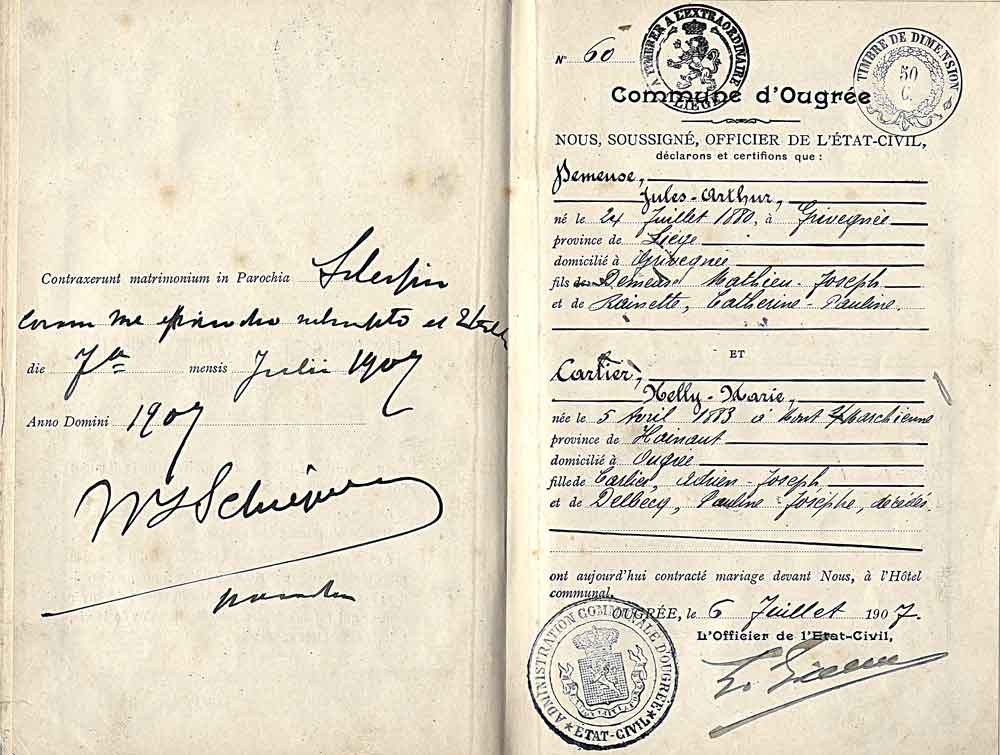 Contraxerunt matrimonium in Parochia
coram me et
die 7a mensis Julii 1907
Anno Domini 1907
N° 60
A TIMBRER A L'EXTRAORDINAIRE
LIEGE
TIMBRE DE DIMENSION
50
C.
Commune d'Ougrée
NOUS, SOUSSIGNÉ, OFFICIER DE L'ÉTAT-CIVIL,
déclarons et certifions que :
Demeuse,
Jules-Arthur,
né le 24 Juillet 1880, à Grivegnée
province de Liége
domicilié à Grivegnée
fils de Demeuse Mathieu-Joseph
et de Rainette, Catherine-Pauline.
ET
Cartier,
Nelly-Marie,
née le 5 Avril 1883 à Mont Marchienne
province de Hainaut
domicilié à Ougrée
fille de Cartier, Adrien-Joseph,
et de Delbecq, Pauline-Josèphe, décédés.
ont aujourd'hui contracté mariage devant Nous, à l'Hôtel
communal.
OUGRÉE, le 6 Juillet 1907.
L'Officier de l'Etat-Civil,
ADMINISTRATION COMMUNALE D'OUGRÉE
ÉTAT-CIVIL